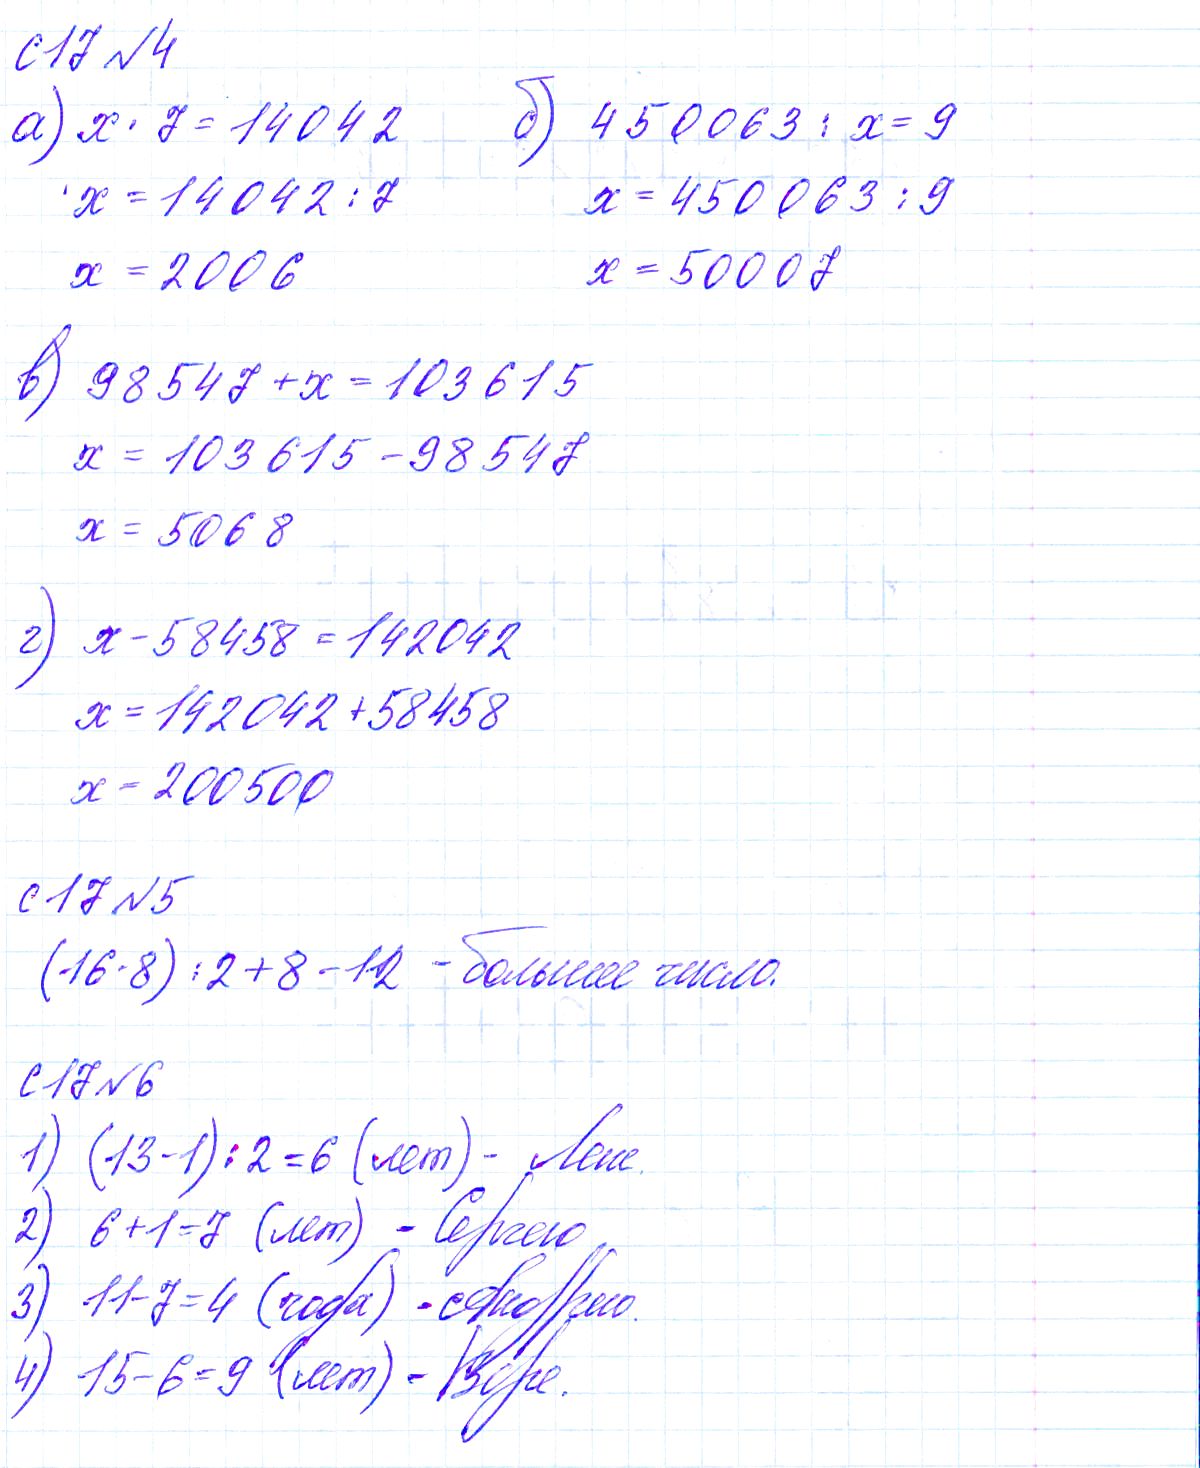 с 17 №4
а) x · 7 = 14042 б) 450063 : x = 9
x = 14042 : 7 x = 450063 : 9
x = 2006 x = 50007
в) 98547 + x = 103615
x = 103615 - 98547
x = 5068
г) x - 58458 = 142042
x = 142042 + 58458
x = 200500
с 17 №5
(16·8) : 2 + 8 - 12 - большее число.
с 17 №6
1) (13-1) : 2 = 6 (лет) - Лене.
2) 6+1=7 (лет) - Сергею
3) 11-7=4 (года) - Андрею.
4) 15-6=9 (лет) - Вере.